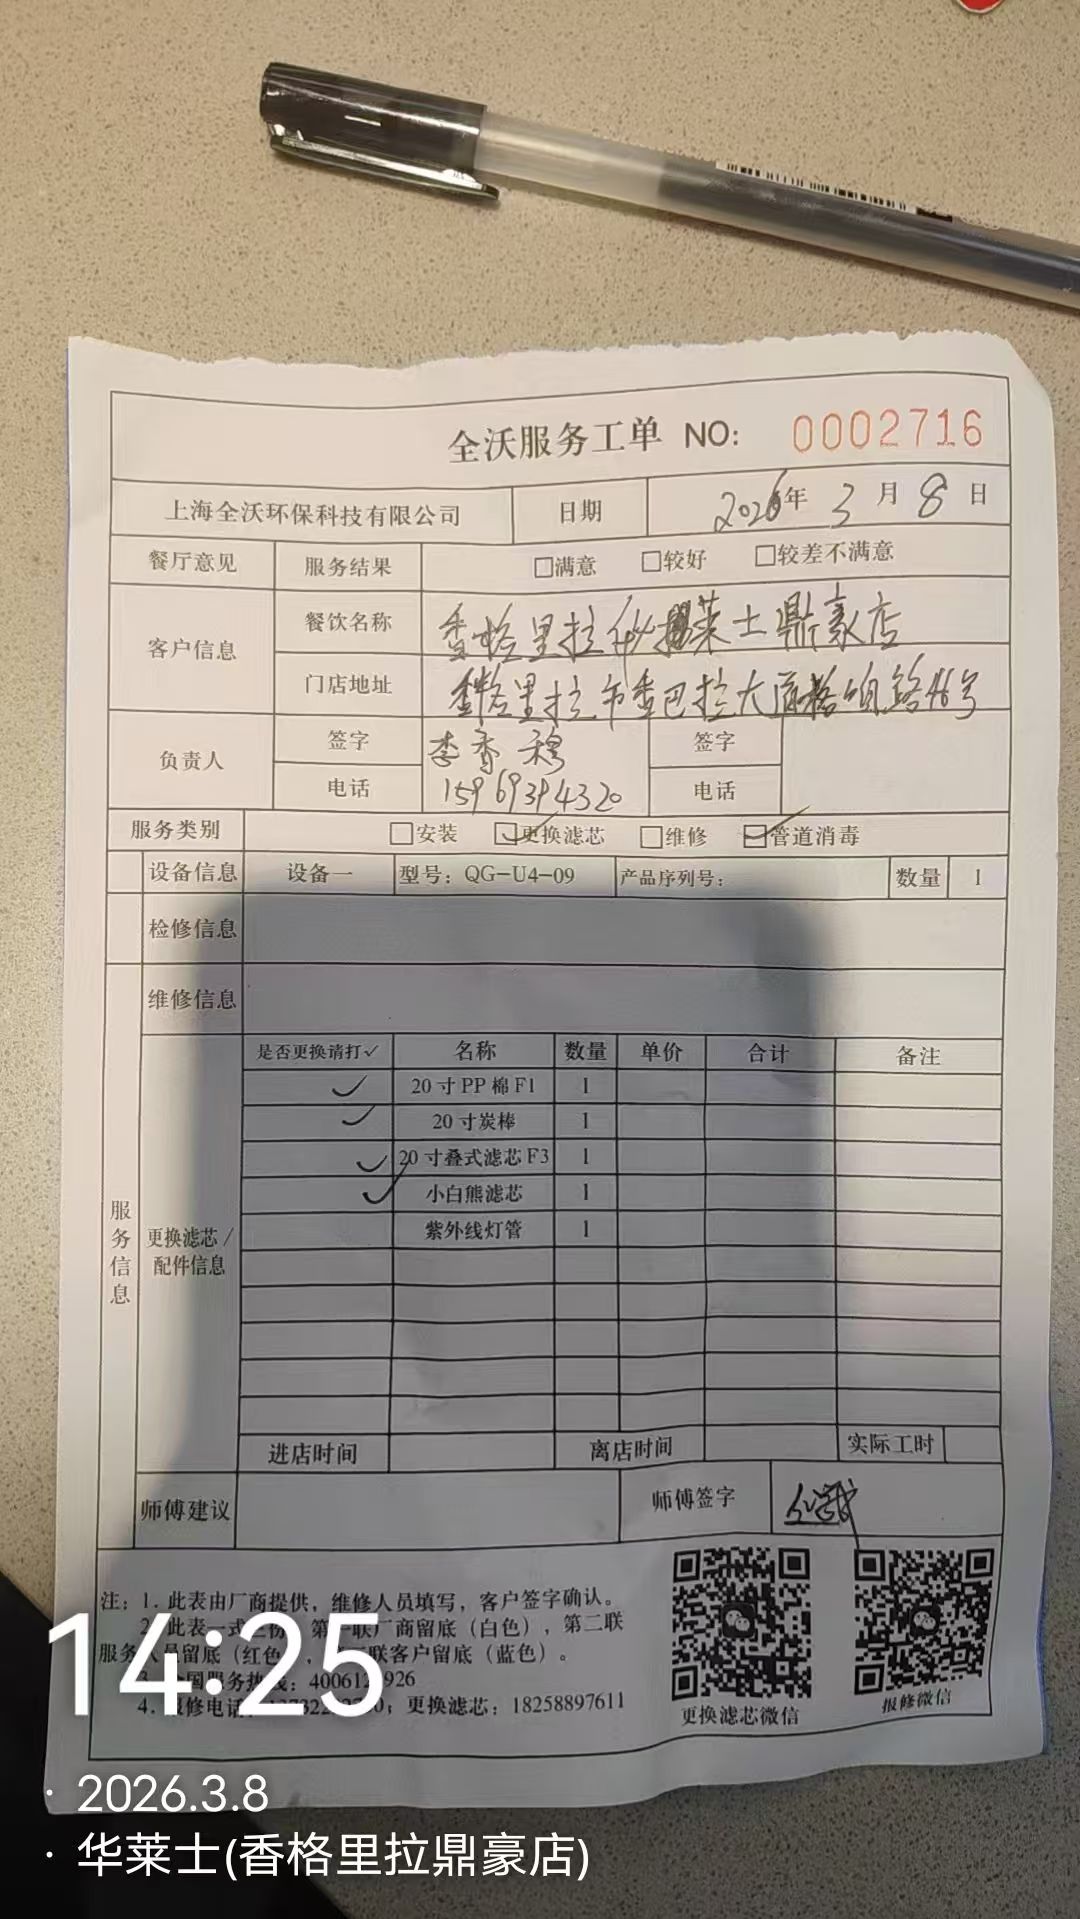 全沃服务工单 NO: 0002716
上海全沃环保科技有限公司 日期 2026年 3月 8日
餐厅意见 服务结果 □满意 □较好 □较差不满意
客户信息 餐饮名称 香格里拉 莱士鼎豪店
门店地址 香格里拉市香巴拉大道 路46号
负责人 签字 李香 签字
电话 15969394320 电话
服务类别 □安装 ☑更换滤芯 □维修 ☑管道消毒
设备信息 设备一 型号：QG-U4-09 产品序列号： 数量 1
检修信息
维修信息
是否更换请打✓ 名称 数量 单价 合计 备注
✓ 20寸PP棉F1 1
✓ 20寸炭棒 1
✓ 20寸叠式滤芯F3 1
✓ 小白熊滤芯 1
紫外线灯管 1
服务信息
更换滤芯/
配件信息
进店时间 离店时间 实际工时
师傅建议 师傅签字
注：1. 此表由厂商提供，维修人员填写，客户签字确认。
2. 此表一式三份，第一联厂商留底（白色），第二联
服务人员留底（红色），第三联客户留底（蓝色）。
3. 全国服务热线：400612 926
4. 报修电话： ；更换滤芯：18258897611
更换滤芯微信 报修微信
14:25
· 2026.3.8
· 华莱士(香格里拉鼎豪店)